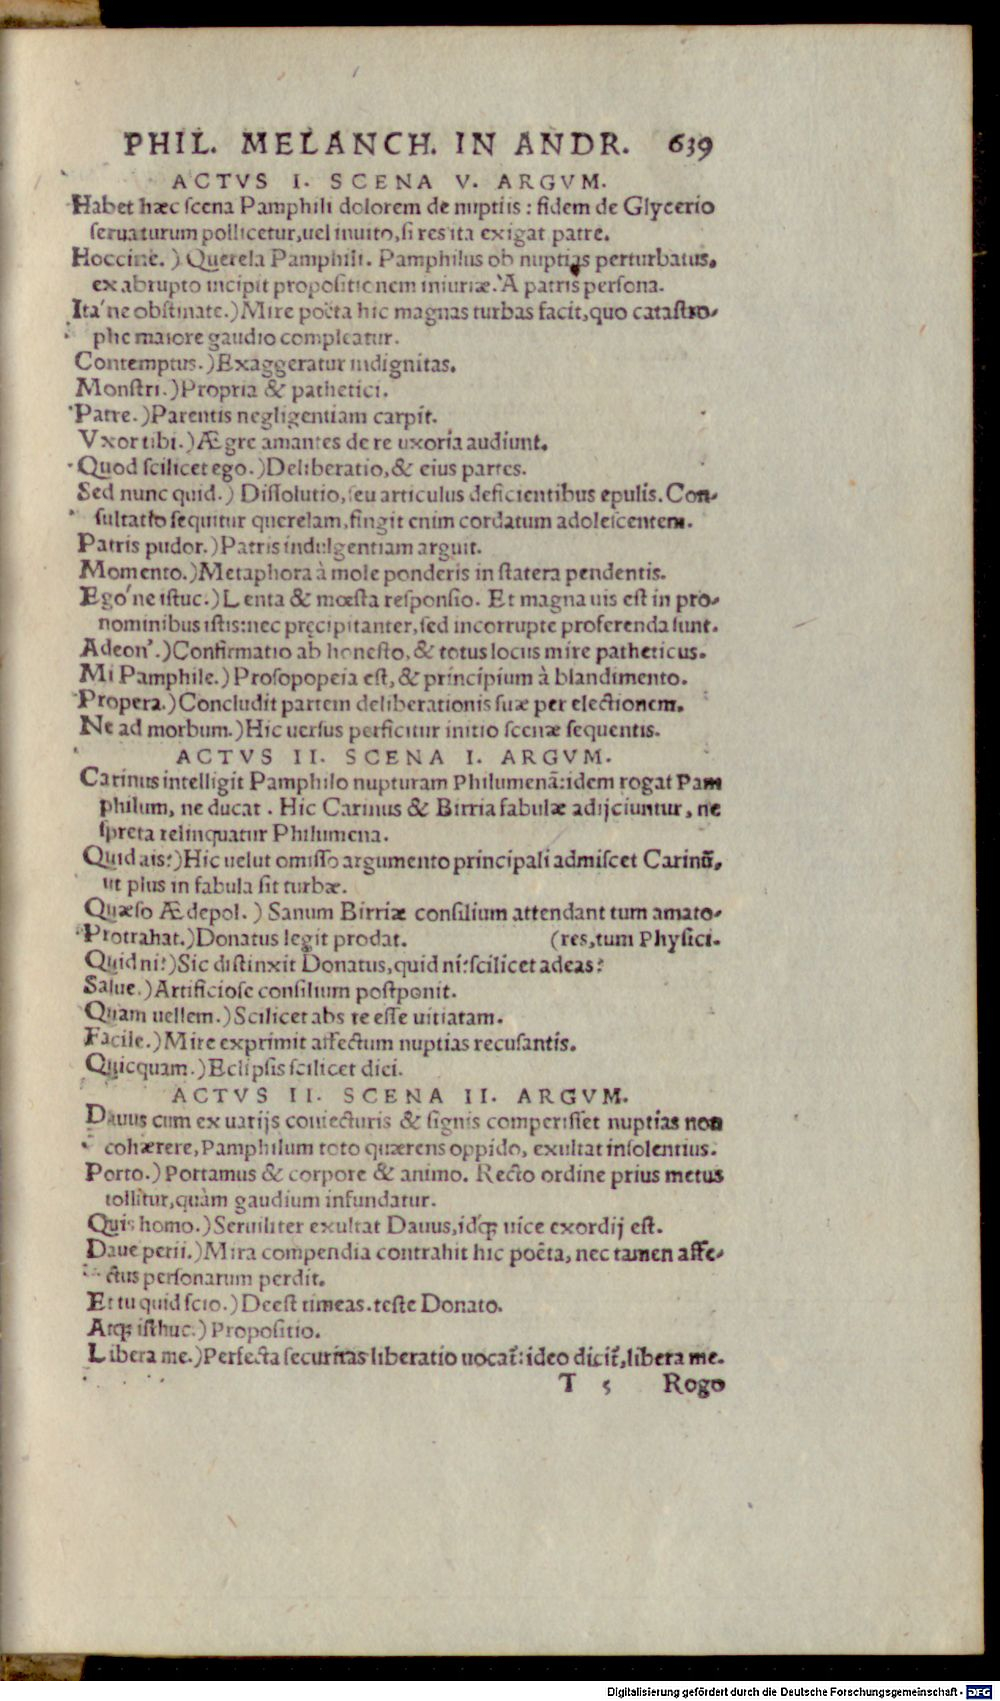 PHIL. MELANCH. IN ANDR. 639
ACTVS I. SCENA V. ARGVM.
Habet hæc scena Pamphili dolorem de nuptiis : fidem de Glycerio
seruaturum pollicetur,uel inuito,si res ita exigat patre.
Hoccine.) Querela Pamphili. Pamphilus ob nuptias perturbatus,
ex abrupto incipit propositionem iniuriæ. A patris persona.
Ita'ne obstinate.)Mire poëta hic magnas turbas facit,quo catastro-
phe maiore gaudio compleatur.
Contemptus.)Exaggeratur indignitas.
Monstri.)Propria & pathetici.
Patre.)Parentis negligentiam carpit.
Vxor tibi.)Ægre amantes de re uxoria audiunt.
Quod scilicet ego.)Deliberatio,& eius partes.
Sed nunc quid.) Dissolutio,seu articulus deficientibus epulis. Con-
sultatio sequitur querelam,fingit enim cordatum adolescentem.
Patris pudor.)Patris indulgentiam arguit.
Momento.)Metaphora à mole ponderis in statera pendentis.
Ego'ne istuc.)Lenta & mœsta responsio. Et magna uis est in pro-
nominibus istis:nec pręcipitanter,sed incorrupte proferenda sunt.
Adeon'.)Confirmatio ab honesto,& totus locus mire patheticus.
Mi Pamphile.) Prosopopeia est,& principium à blandimento.
Propera.)Concludit partem deliberationis suæ per electionem.
Ne ad morbum.)Hic uersus perficitur initio scenæ sequentis.
ACTVS II. SCENA I. ARGVM.
Carinus intelligit Pamphilo nupturam Philumenã:idem rogat Pam
philum, ne ducat . Hic Carinus & Birria fabulæ adijciuntur, ne
spreta relinquatur Philumena.
Quid ais?)Hic uelut omisso argumento principali admiscet Carinū,
ut plus in fabula sit turbæ.
Quæso Ædepol.) Sanum Birriæ consilium attendant tum amato-
Protrahat.)Donatus legit prodat. (res,tum Physici.
Quid ni?)Sic distinxit Donatus,quid ni?scilicet adeas?
Salue.)Artificiose consilium postponit.
Quam uellem.)Scilicet abs te esse uitiatam.
Facile.)Mire exprimit affectum nuptias recusantis.
Quicquam.)Eclipsis scilicet dici.
ACTVS II. SCENA II. ARGVM.
Dauus cum ex uarijs coniecturis & signis comperisset nuptias non
cohærere,Pamphilum toto quærens oppido, exultat insolentius.
Porto.) Portamus & corpore & animo. Recto ordine prius metus
tollitur,quàm gaudium infundatur.
Quis homo.)Seruiliter exultat Dauus,idq́ꝫ uice exordij est.
Daue perii.)Mira compendia contrahit hic poëta, nec tamen affe-
ctus personarum perdit.
Et tu quid scio.)Deest timeas.teste Donato.
Atqꝫ isthuc.)Propositio.
Libera me.)Perfecta securitas liberatio uocat̃:ideo dicit̃,libera me.
T 5 Rogo
Digitalisierung gefördert durch die Deutsche Forschungsgemeinschaft - DFG